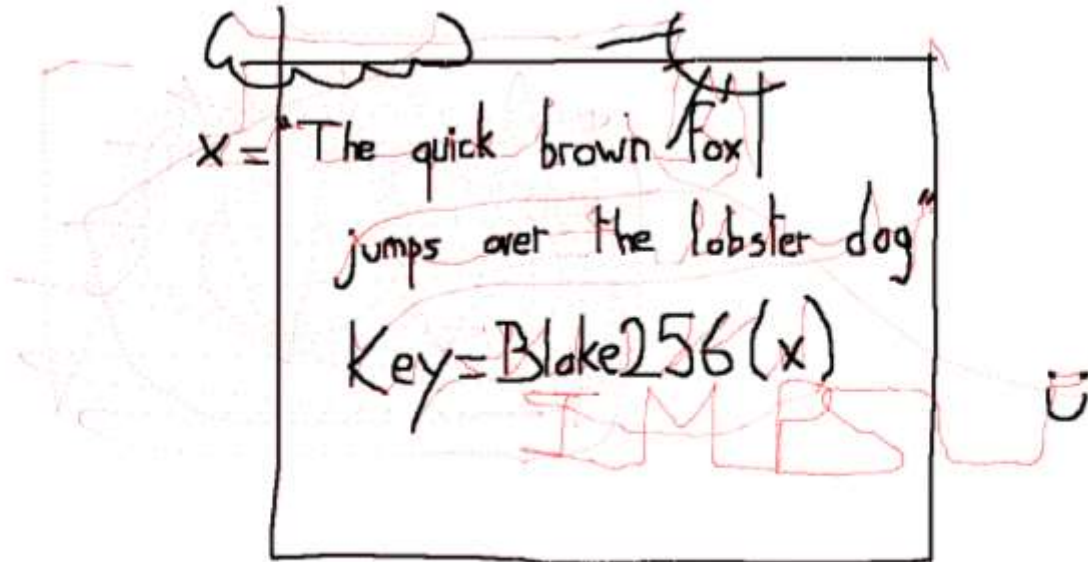 x = "The quick brown fox
jumps over the lobster dog"
Key=Blake256(x)
IMB